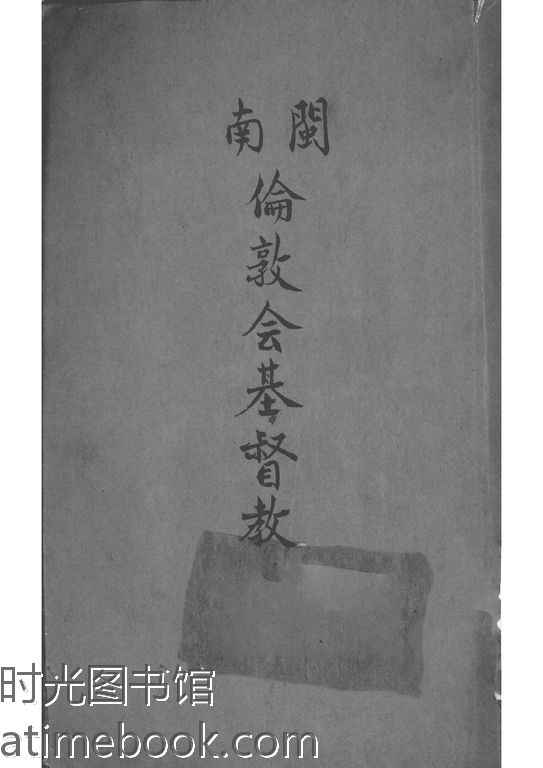 閩南
倫敦会基督教
时光图书馆
atimebook.com